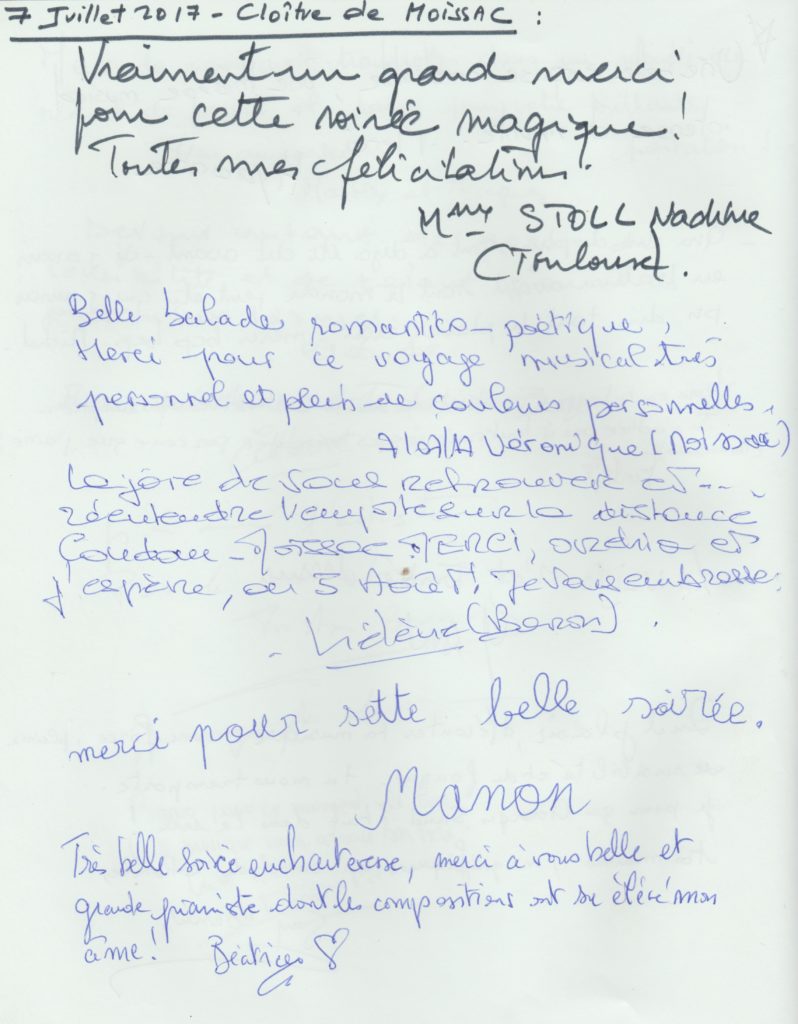 7 Juillet 2017 - Cloître de MOISSAC :
Vraiment un grand merci
pour cette soirée magique !
Toutes mes félicitations.
Mme STOLL Nadine
(Toulouse).
Belle balade romantico-poétique,
Merci pour ce voyage musical très
personnel et plein de couleurs personnelles.
Véronique (Moissac)
La joie de vous retrouver et--
réentendre l'emporte sur la distance
- Moissac. MERCI, et
j'espère, au 3 Août. Je vous embrasse.
- Hélène (Baron) .
merci pour sette belle soirée.
Manon
Très belle soirée enchanteresse, merci à vous belle et
grande pianiste dont les compositions ont su élever mon
âme ! Béatrice ♡